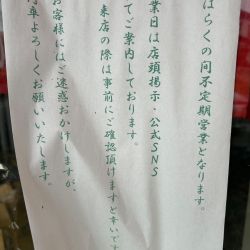 ばらくの間不定期営業となります。
業日は店頭掲示・公式SNS
てご案内しております。
来店の際は事前にご確認頂けますと幸いです
お客様にはご迷惑おかけしますが、
卒よろしくお願いいたします。